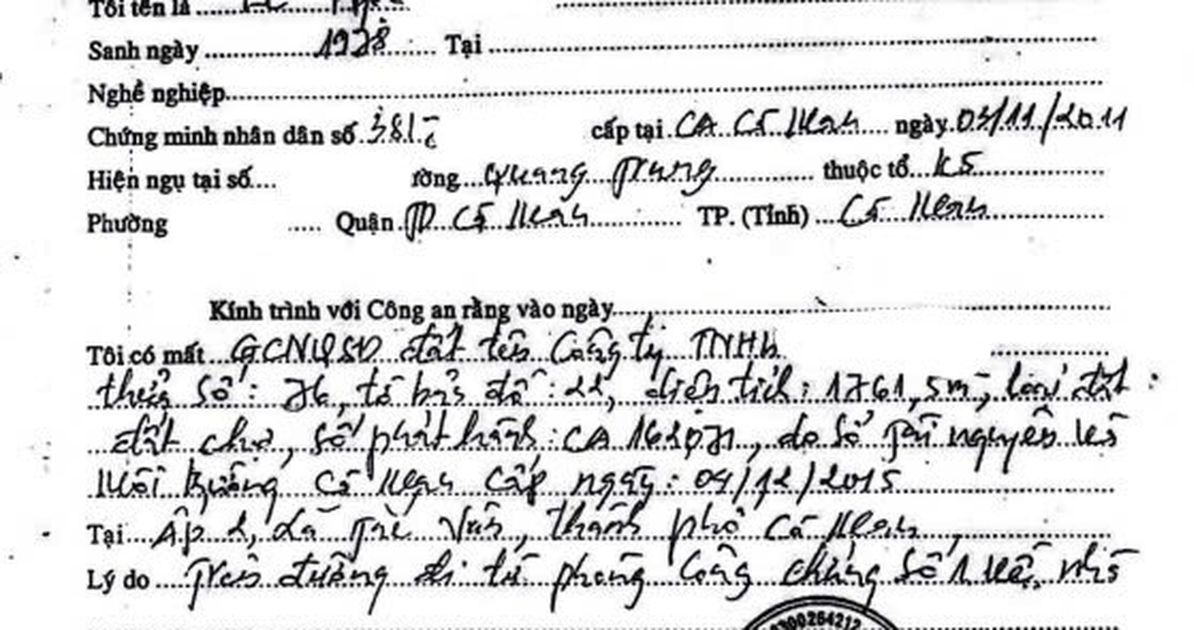 Tôi tên là
Sanh ngày 1978 Tại
Nghề nghiệp
Chứng minh nhân dân số 381 cấp tại CA Cà Mau ngày 03/11/2011
Hiện ngụ tại số rờng Quang Trung thuộc tổ K5
Phường Quận TP Cà Mau TP. (Tỉnh) Cà Mau
Kính trình với Công an rằng vào ngày
Tôi có mất GCNQSD đất tên Công ty TNHH
thửa số: 76, tờ bản đồ: 22, diện tích: 1761,5m², loại đất:
đất chợ, số phát hành: CA 162071, do Sở Tài nguyên và
Môi trường Cà Mau cấp ngày: 04/12/2015
Tại Ấp 2, xã Tắc Vân, thành phố Cà Mau
Lý do Trên đường đi từ phòng công chứng số 1 về nhà